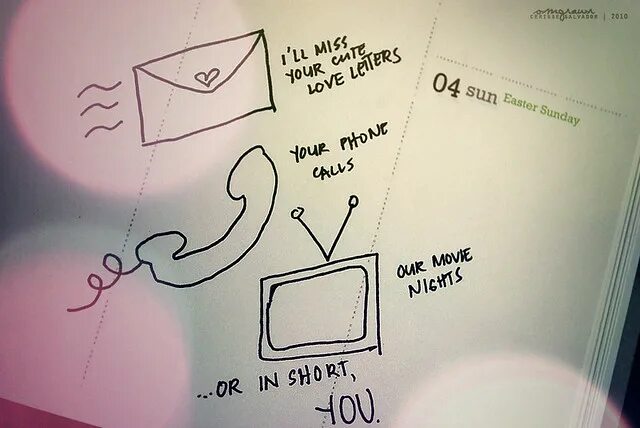 CERISSE SALVADOR | 2010
I'LL MISS
YOUR CUTE
LOVE LETTERS
04 sun Easter Sunday
YOUR PHONE
CALLS
OUR MOVIE
NIGHTS
...OR IN SHORT,
YOU.